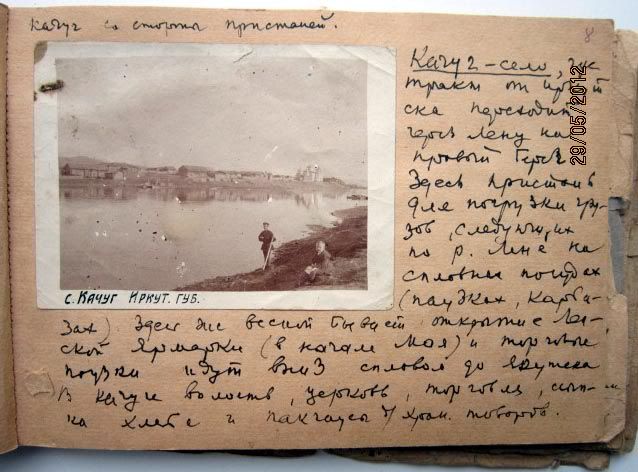 Качуг со стороны пристаней.
8
Качуг – село, где
тракт от Иркут
ска переходит
через Лену на
правый берег
Здесь пристань
для погрузки гру-
зов, следующих
по р. Лене на
сплавных
(паузках, карба-
зах). Здесь же весной бывает открытие Лен-
ской ярмарки (в начале мая) и торговые
паузки идут вниз сплавом до Якутска
В Качуге волость, церковь, торговля, ссып-
ка хлеба и пакгаузы д/ хран. товаров.
с. Качуг Иркут. губ.
29/05/2012